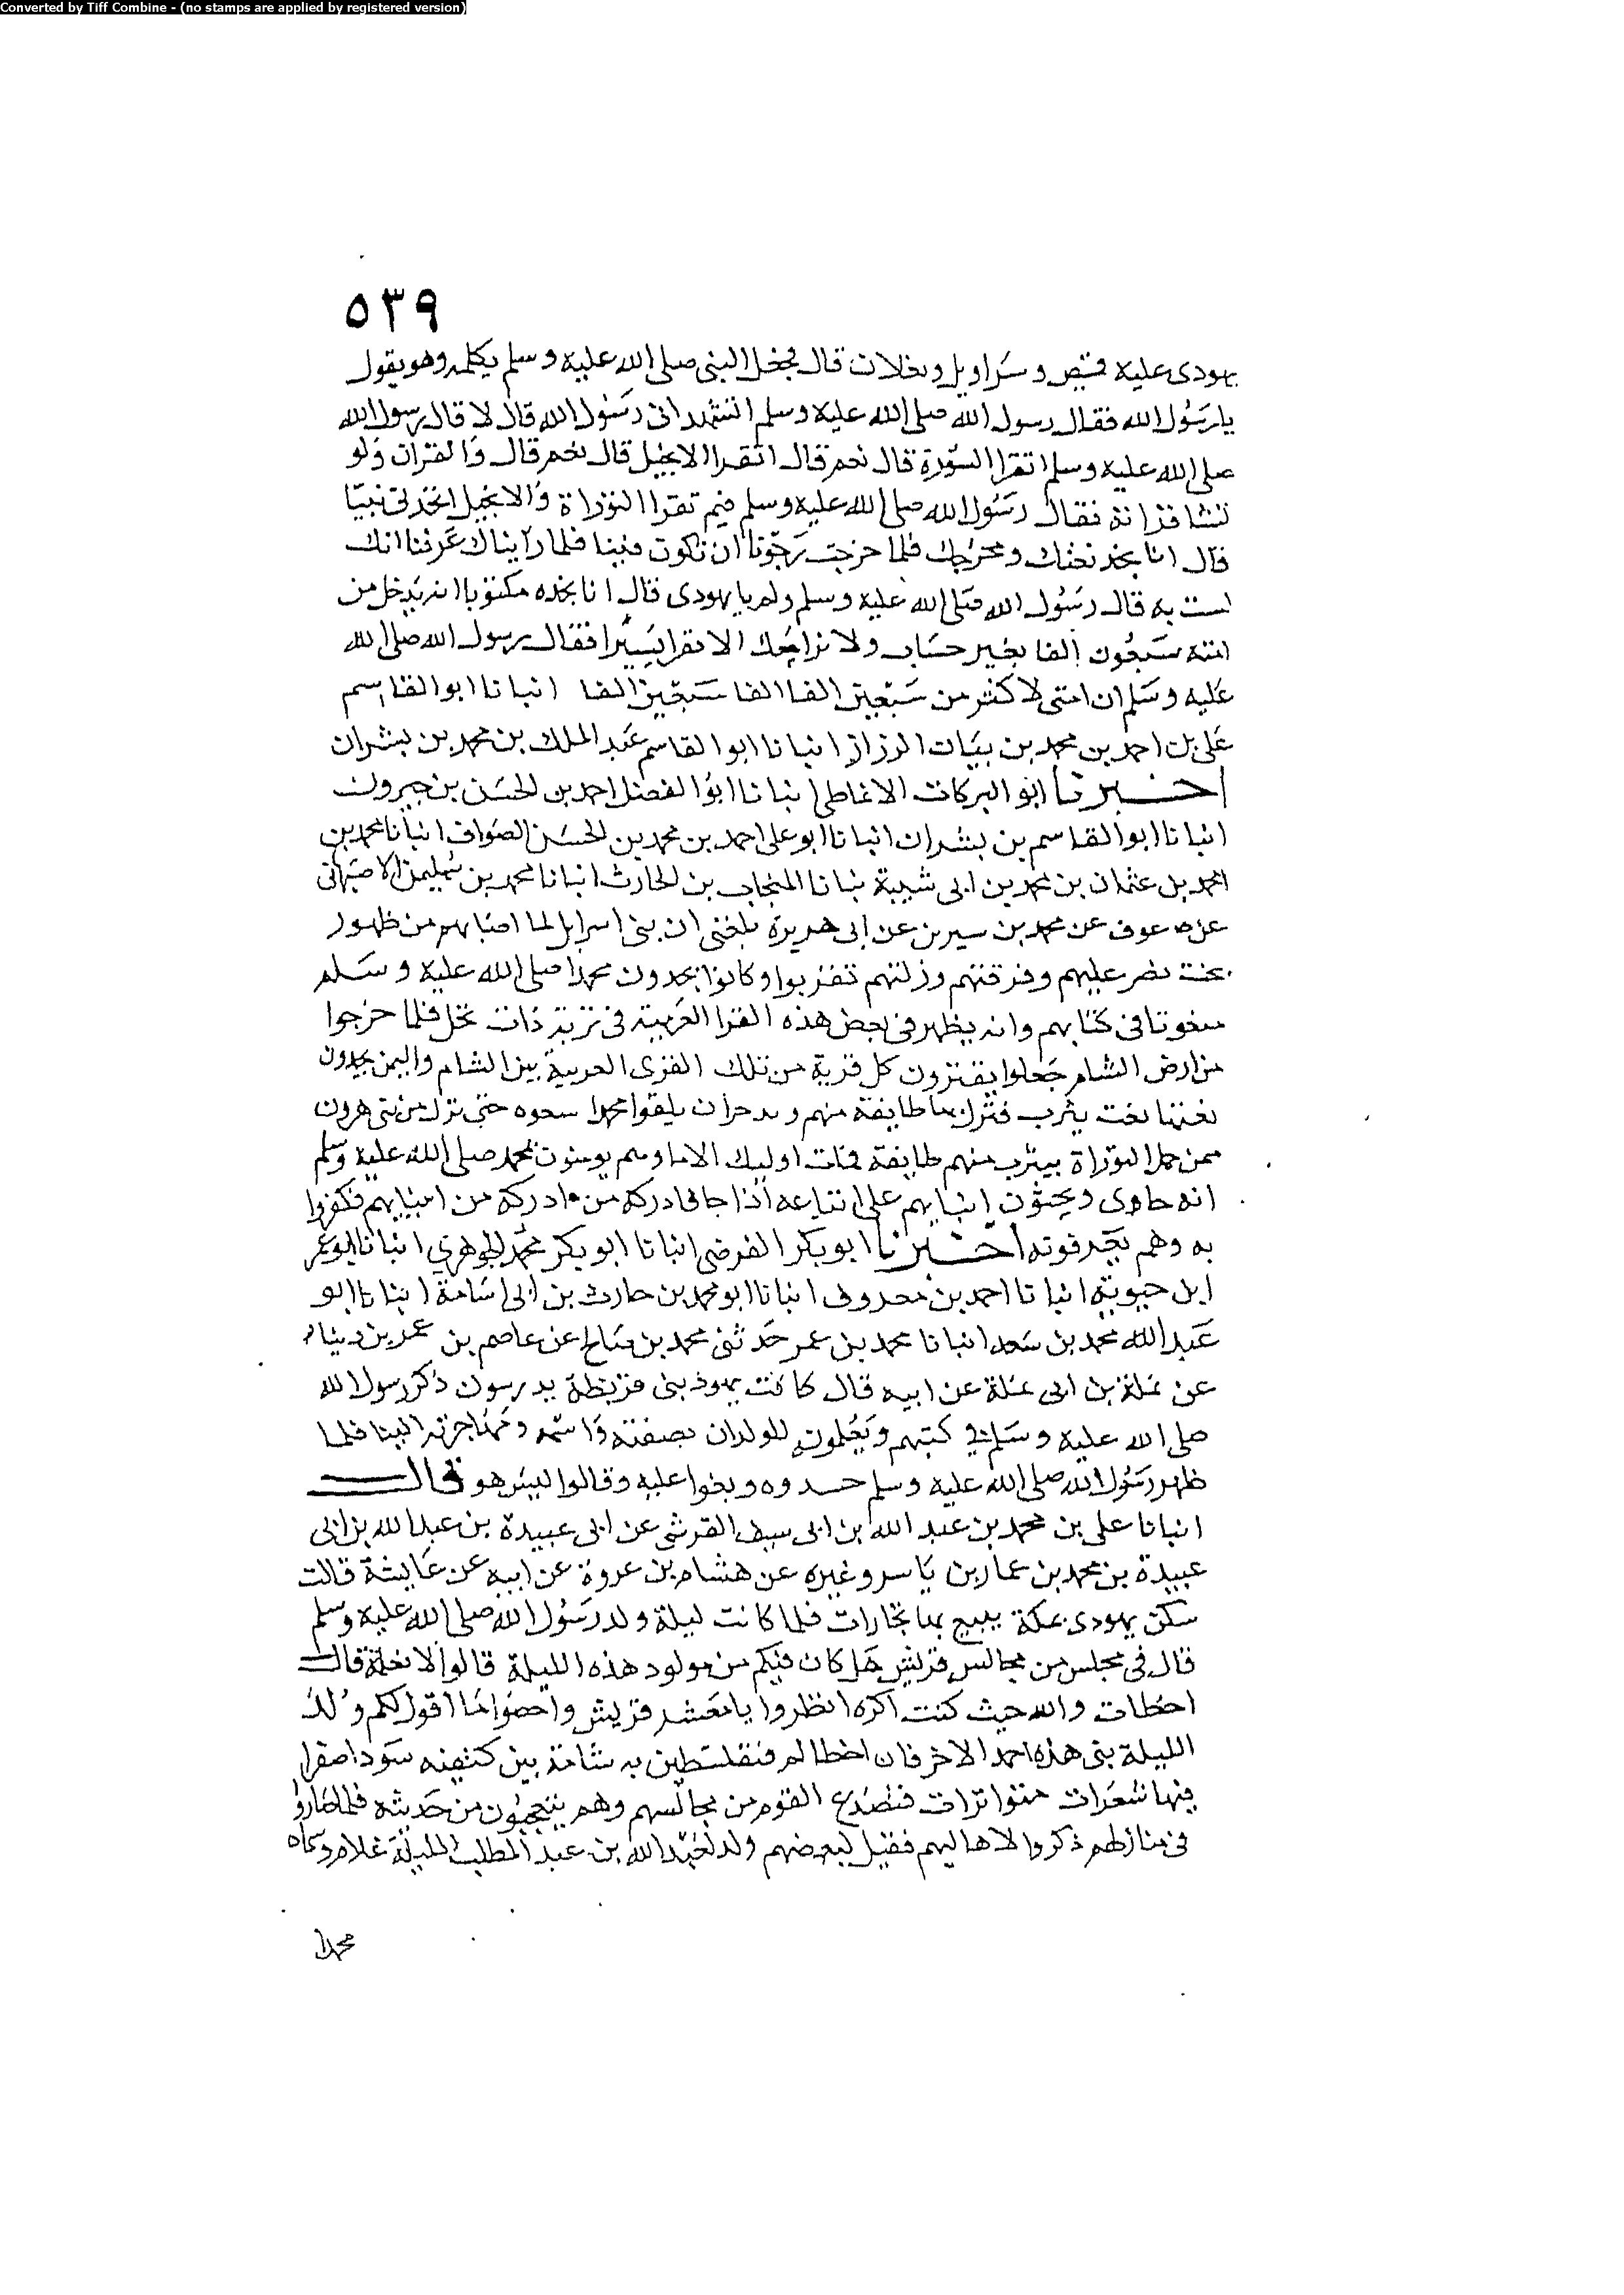 Converted by Tiff Combine - (no stamps are applied by registered version)
٥٣٩
يهودى عليه قميص وسراويل ونعلان قال فجعل النبى صلى الله عليه وسلم يكلمه وهو يقول
يا رسول الله فقال رسول الله صلى الله عليه وسلم اتشهد انى رسول الله قال لا قال رسول الله
صلى الله عليه وسلم اتقرا التورة قال نعم قال اتقرا الانجيل قال نعم قال والقران ولو
نشا قراته فقال رسول الله صلى الله عليه وسلم فبم تقرا التوراة والانجيل اتجدنى نبيا
قال انا نجد نعتك ومخرجك فلما خرجت رجونا ان تكون فينا فلما رايناك عرفنا انك
لست به قال رسول الله صلى الله عليه وسلم ولم يا يهودى قال انا نجده مكتوبا انه يدخل من
امته سبعون الفا بغير حساب ولا نرا معك الا نفرا يسيرا فقال رسول الله صلى الله
عليه وسلم ان امتى لاكثر من سبعين الفا الفا سبعين الفا انبانا ابو القاسم
على بن احمد بن محمد بن بيان الرزاز انبانا ابو القاسم عبد الملك بن محمد بن بشران
اخبرنا ابو البركات الانماطى انبانا ابو الفضل احمد بن الحسن بن خيرون
انبانا ابو القاسم بن بشران انبانا ابو على احمد بن محمد بن الحسن الصواف انبانا محمد بن
احمد بن عثمان بن محمد بن ابى شيبة نبانا المنجاب بن الحارث انبانا محمد بن سليمن الاصبهانى
عن عوف عن محمد بن سيرين عن ابى هريرة بلغنى ان بنى اسرايل لما اصابهم من ظهور
بخت نصر عليهم وفرقتهم وذلتهم تفربوا وكانوا يجدون محمدا صلى الله عليه وسلم
منعوتا فى كتابهم وانه يظهر فى بعض هذه القرا العربية فى قرية ذات نخل فلما خرجوا
من ارض الشام جعلوا يقترون كل قرية من تلك القرى العربية بين الشام واليمن يجدون
نعتها نعت يثرب فنزل بها طايفة منهم ويرجون ان يلقوا محمدا حتى نزل من بنى هرون
ممن حمل التوراة بيثرب منهم طايفة فمات اوليك الابا وهم يومنون بمحمد صلى الله عليه وسلم
انه جاوى ويحثون ابنايهم على اتباعه اذا جا فادركه من ادركه من ابنايهم فكفروا
به وهم يعرفونه اخبرنا ابو بكر الفرضى انبانا ابو بكر محمد الجوهرى انبانا ابو عمر
ابن حيوية انبانا احمد بن معروف انبانا ابو محمد بن حارث بن ابى اسامة انبانا ابو
عبد الله محمد بن سعد انبانا محمد بن عمر حدثنى محمد بن صالح عن عاصم بن عمر بن
عن نملة بن ابى نملة عن ابيه قال كانت يهود بنى قريظة يدرسون ذكر رسول الله
صلى الله عليه وسلم فى كتبهم ويعلمون للولدان بصفته واسمه ومهاجره الينا فلما
ظهر رسول الله صلى الله عليه وسلم حسدوه وبغوا عليه وقالوا ليس هو قال
انبانا على بن محمد بن عبد الله بن ابى سيف القرشى عن ابى عبيدة بن عبد الله بن ابى
عبيدة بن محمد بن عمار بن ياسر وغيره عن هشام بن عروة عن ابيه عن عايشة قالت
سكن يهودى بمكة يبيع بها تجارات فلما كانت ليلة ولد رسول الله صلى الله عليه وسلم
قال فى مجلس من مجالس قريش هل كان فيكم من مولود هذه الليلة قالوا لا نعلمه قال
اخطات والله حيث كنت اكره انظروا يا معشر قريش واحصوا ما اقول لكم ولد
الليلة بنى هذه احمد الاخر فان اخطاكم فبفلسطين به شامة بين كتفيه سودا صفرا
فيها شعرات متواترات فتصدع القوم من مجالسهم وهم يتعجبون من حديثه فلما صاروا
فى منازلهم ذكروا لاهاليهم فقيل لبعضهم ولد لعبد الله بن عبد المطلب الليلة غلام وسماه
محمدا